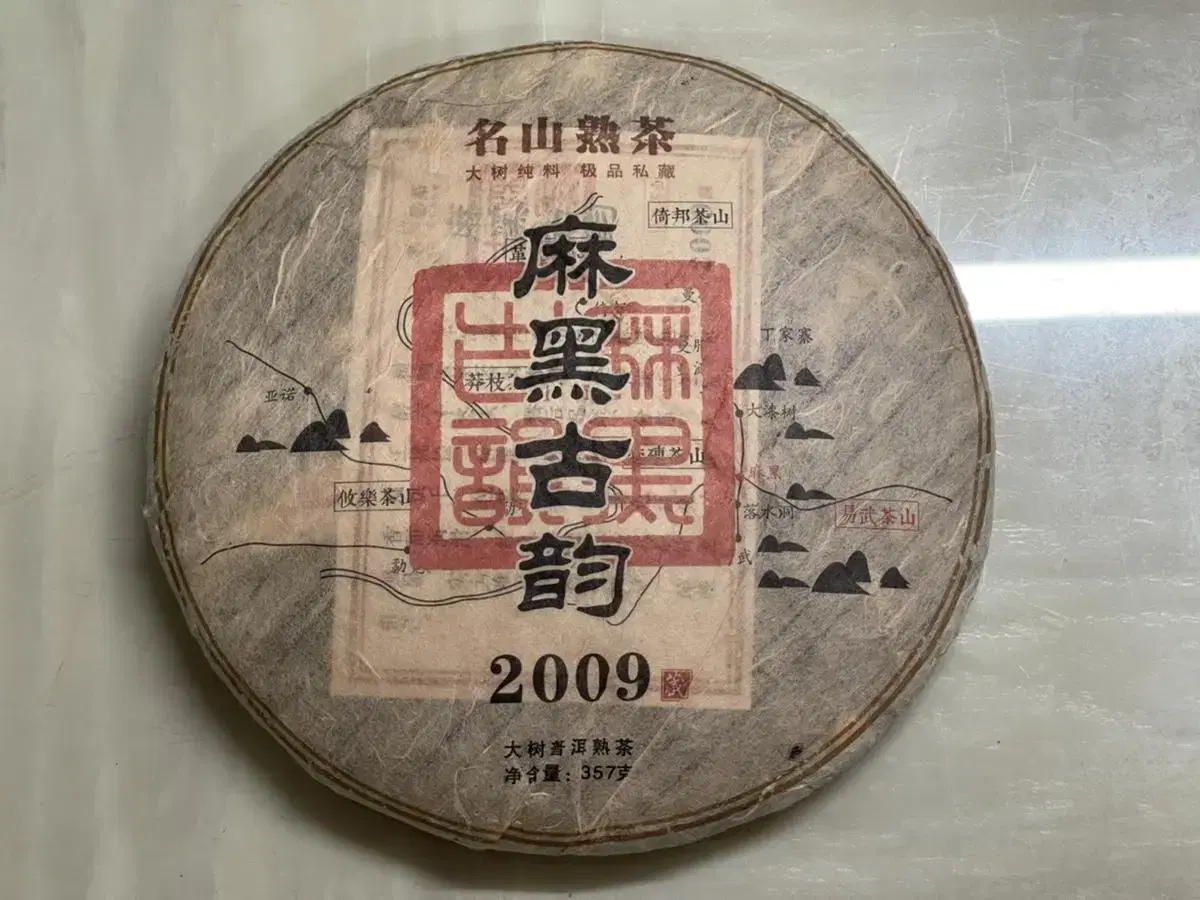 名山熟茶
大树纯料 极品私藏
倚邦茶山
麻黑古韵
麻黑古韵
丁家寨
莽枝
亚诺
大漆树
茶山
麻黑
攸樂茶山
落水洞
易武茶山
武
2009
大树普洱熟茶
净含量：357克